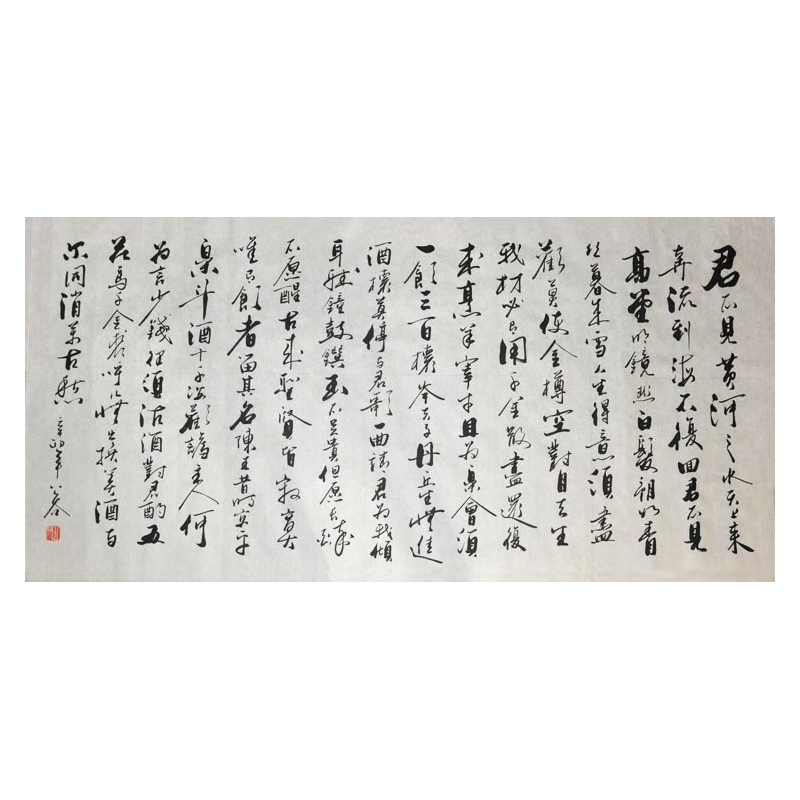 君不見黄河之水天上来
奔流到海不復回君不見
高堂明鏡悲白髮朝如青
丝暮成雪人生得意須盡
歡莫使金樽空對月天生
我材必有用千金散盡還復
来烹羊宰牛且為樂會須
一飲三百杯岑夫子丹丘生將進
酒杯莫停与君歌一曲請君為我傾
耳聽鐘鼓饌玉不足貴但愿長醉
不愿醒古来聖賢皆寂寞
唯有飲者留其名陳王昔時宴平
樂斗酒十千恣歡謔主人何
為言少錢徑須沽酒對君酌五
花馬千金裘呼將出換美酒与
尔同消萬古愁
辛卯年